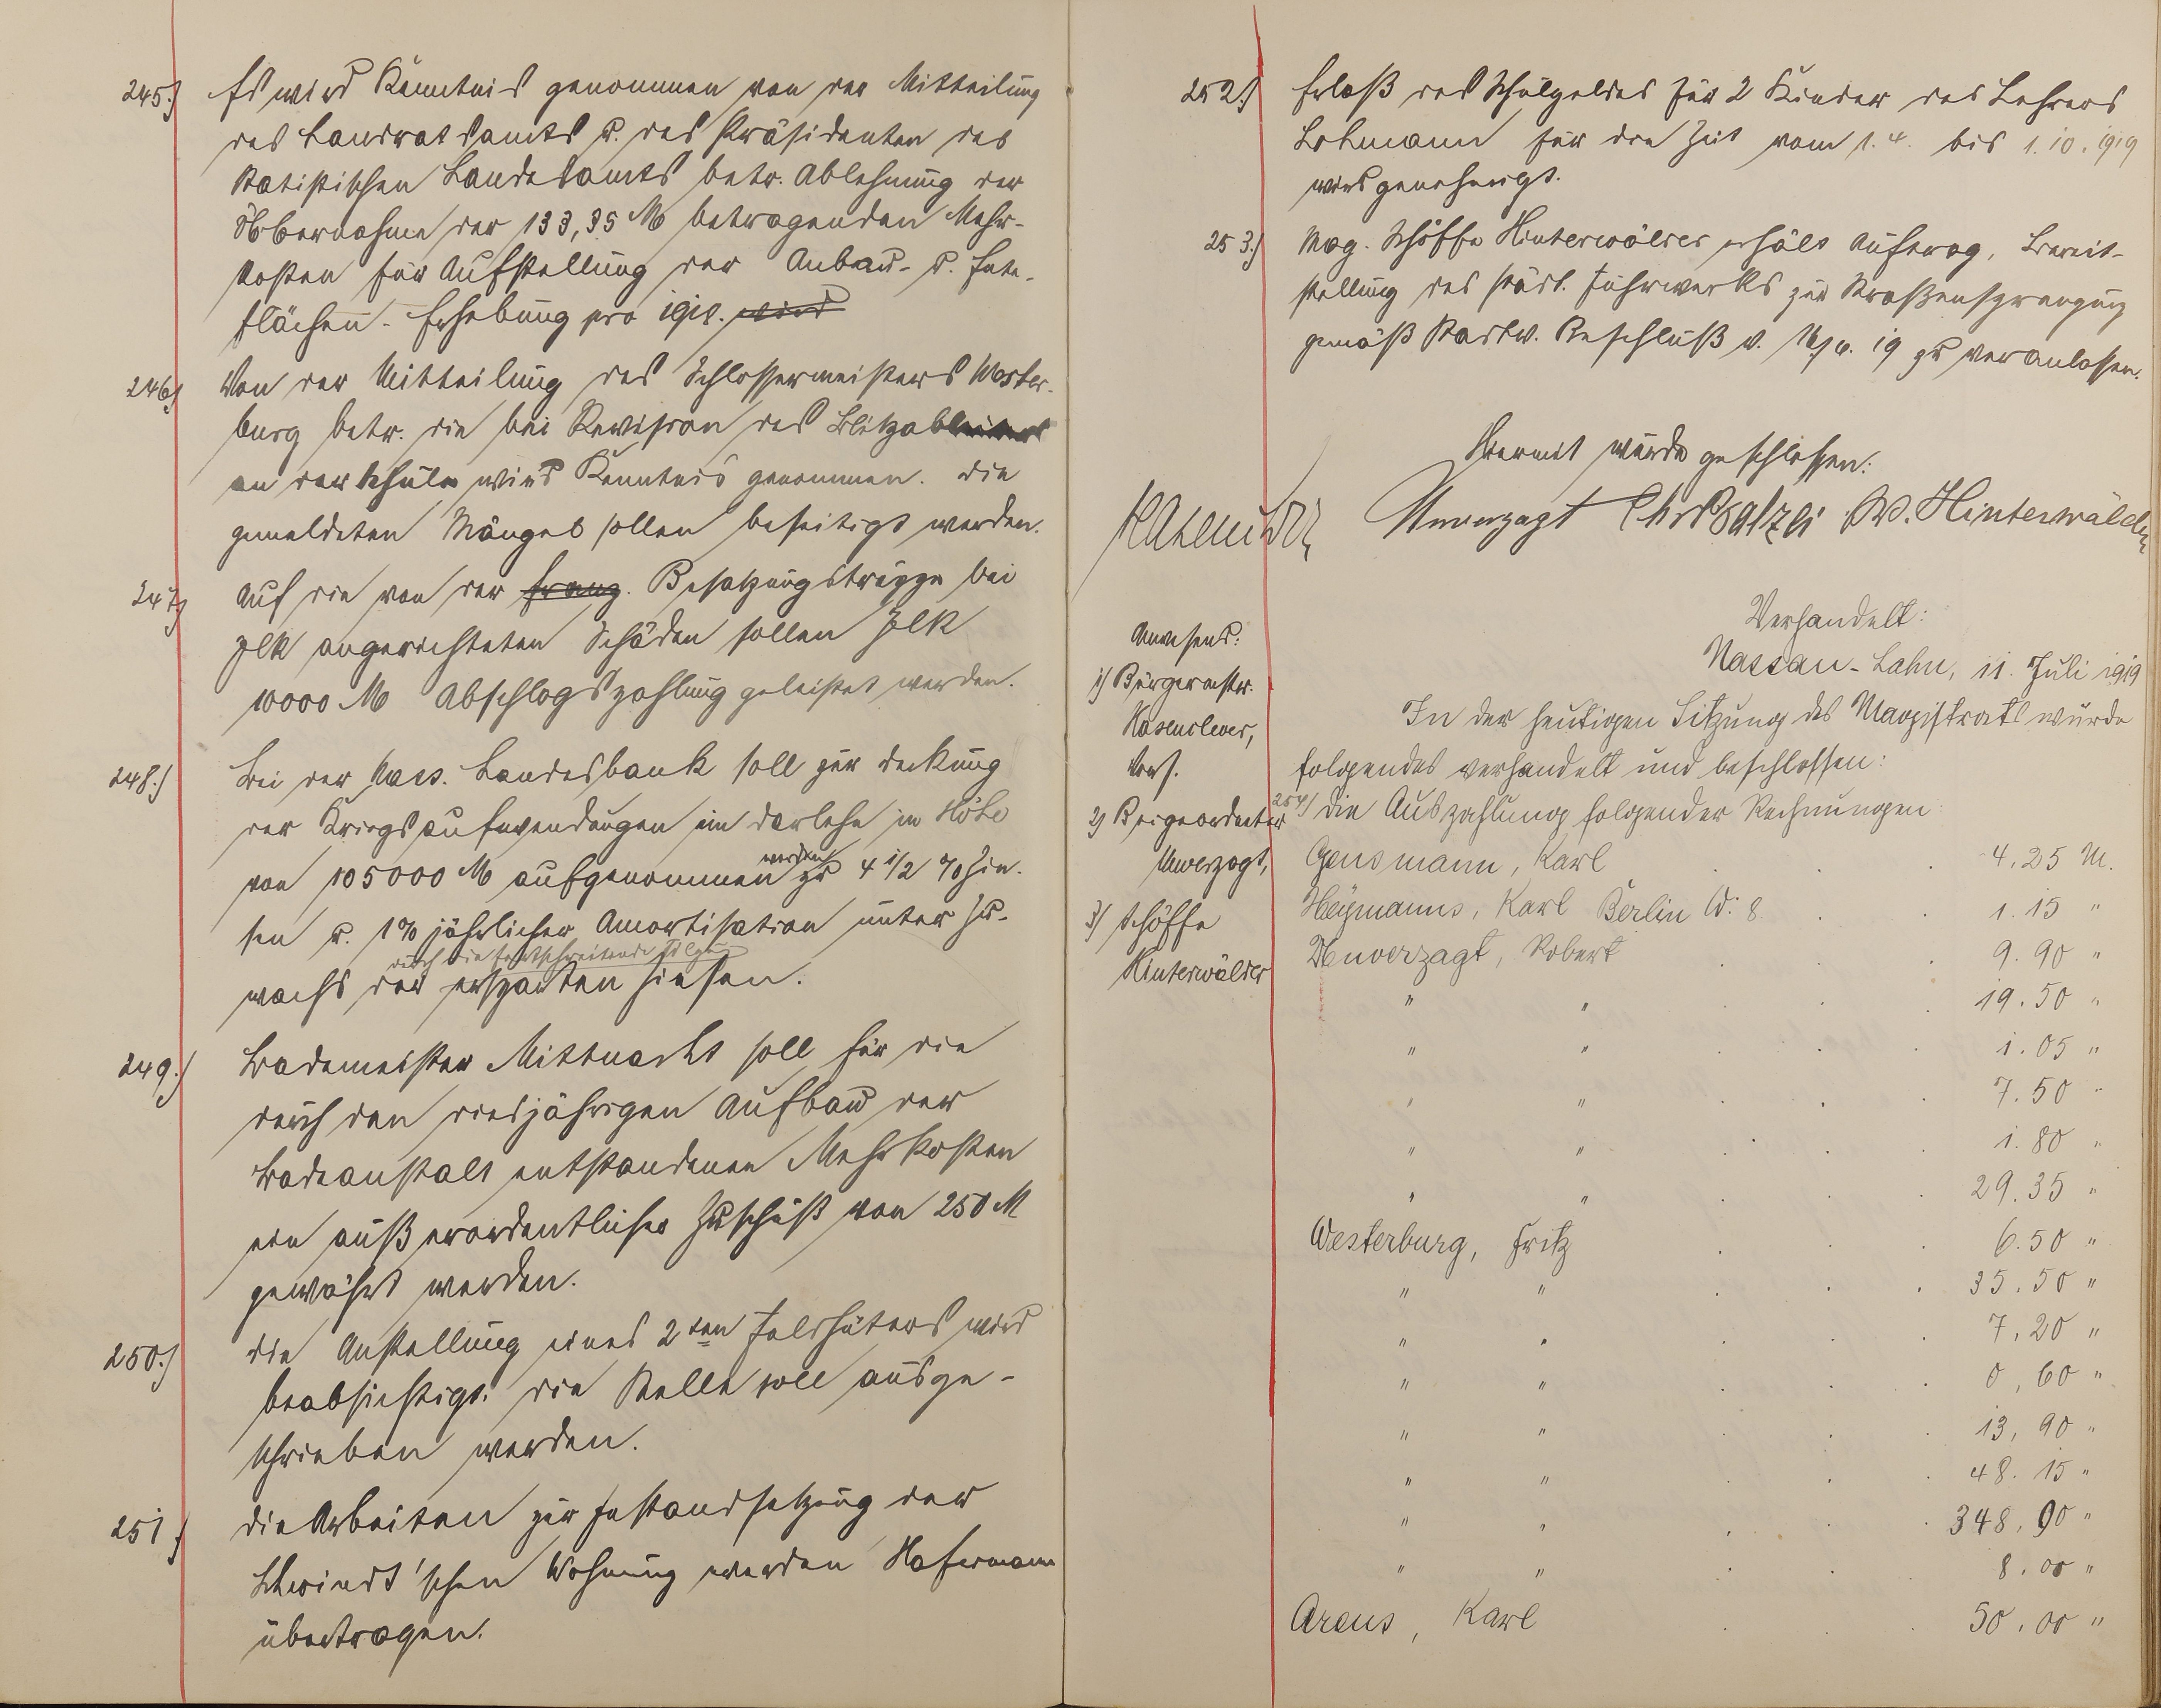 245.) Es wird Kenntnis genommen von der Mitteilung
des Landratsamts u. des Präsidenten des
Statistischen Landesamts betr. Ablehnung der
Übernahme der 133,35 M betragenden Mehr-
kosten für Aufstellung der Anbau- u. Ernte-
flächen-Erhebung pro 1918. wird
246.) Von der Mitteilung des Schlossermeisters Wester-
burg betr. die bei Revision des Blitzableiters
an der Schule wird Kenntnis genommen. Die
gemeldeten Mängel sollen beseitigt werden.
247.) Auf die von der franz. Besatzungstruppe bei
Elk angerichteten Schäden sollen Elk
10000 M Abschlagszahlung geleistet werden.
248.) Bei der Nass. Landesbank soll zur Deckung
der Kriegsaufwendungen ein Darlehn in Höhe
von 105000 M aufgenommen werden zu 4 1/2 % Zin-
sen u. 1% jährlicher Amortisation unter Zu-
durch die fortschreitende Tilgung
wachs der ersparten Zinsen.
249.) Bademeister Mittnacht soll für die
durch den diesjährigen Aufbau der
Badeanstalt entstandenen Mehrkosten
ein außerordentlicher Zuschuß von 250 M
gewährt werden.
250.) Die Anstellung eines 2ten Feldhüters wird
beabsichtigt. Die Stelle soll ausge-
schrieben werden.
251.) Die Arbeiten zur Instandsetzung der
Schwindt'schen Wohnung werden Hafermann
übertragen.
252.) Erlaß des Schulgeldes für 2 Kinder des Lehrers
Lohmann für die Zeit vom 1.4. bis 1.10.1919
wird genehmigt.
253.) Mag. Schöffe Hinterwälder erhält Auftrag, Bereit-
stellung des städt. Fuhrwerks zur Straßensprengung
gemäß Stadtv. Beschluß v. 16/6. 19 zu veranlassen.
Hiermit wurde geschlossen:
Hasenclever Unverzagt Chr Balzer W. Hinterwälder
Verhandelt:
Nassau-Lahn, 11. Juli 1919
Anwesend:
1) Bürgermstr.
Hasenclever,
Vors.
2) Beigeordneter
Unverzagt,
3) Schöffe
Hinterwälder
In der heutigen Sitzung des Magistrats wurde
folgendes verhandelt und beschlossen:
254) Die Auszahlung folgender Rechnungen
Gensmann, Karl . . 4.25 M.
Heymanns, Karl Berlin W: 8 . . 1.15 "
Unverzagt, Robert . . 9.90 "
" " . . 19.50 "
" " . . 1.05 "
" " . . 7.50 "
" " . . 1.80 "
" " . . 29.35 "
Westerburg, Fritz . . 6.50 "
" " . . 35.50 "
" " . . 7,20 "
" " . . 0,60 "
" " . . 13,90 "
" " . . 48.15 "
" " . . 348,90 "
" " . . 8.00 "
Arens, Karl . . 50.00 "